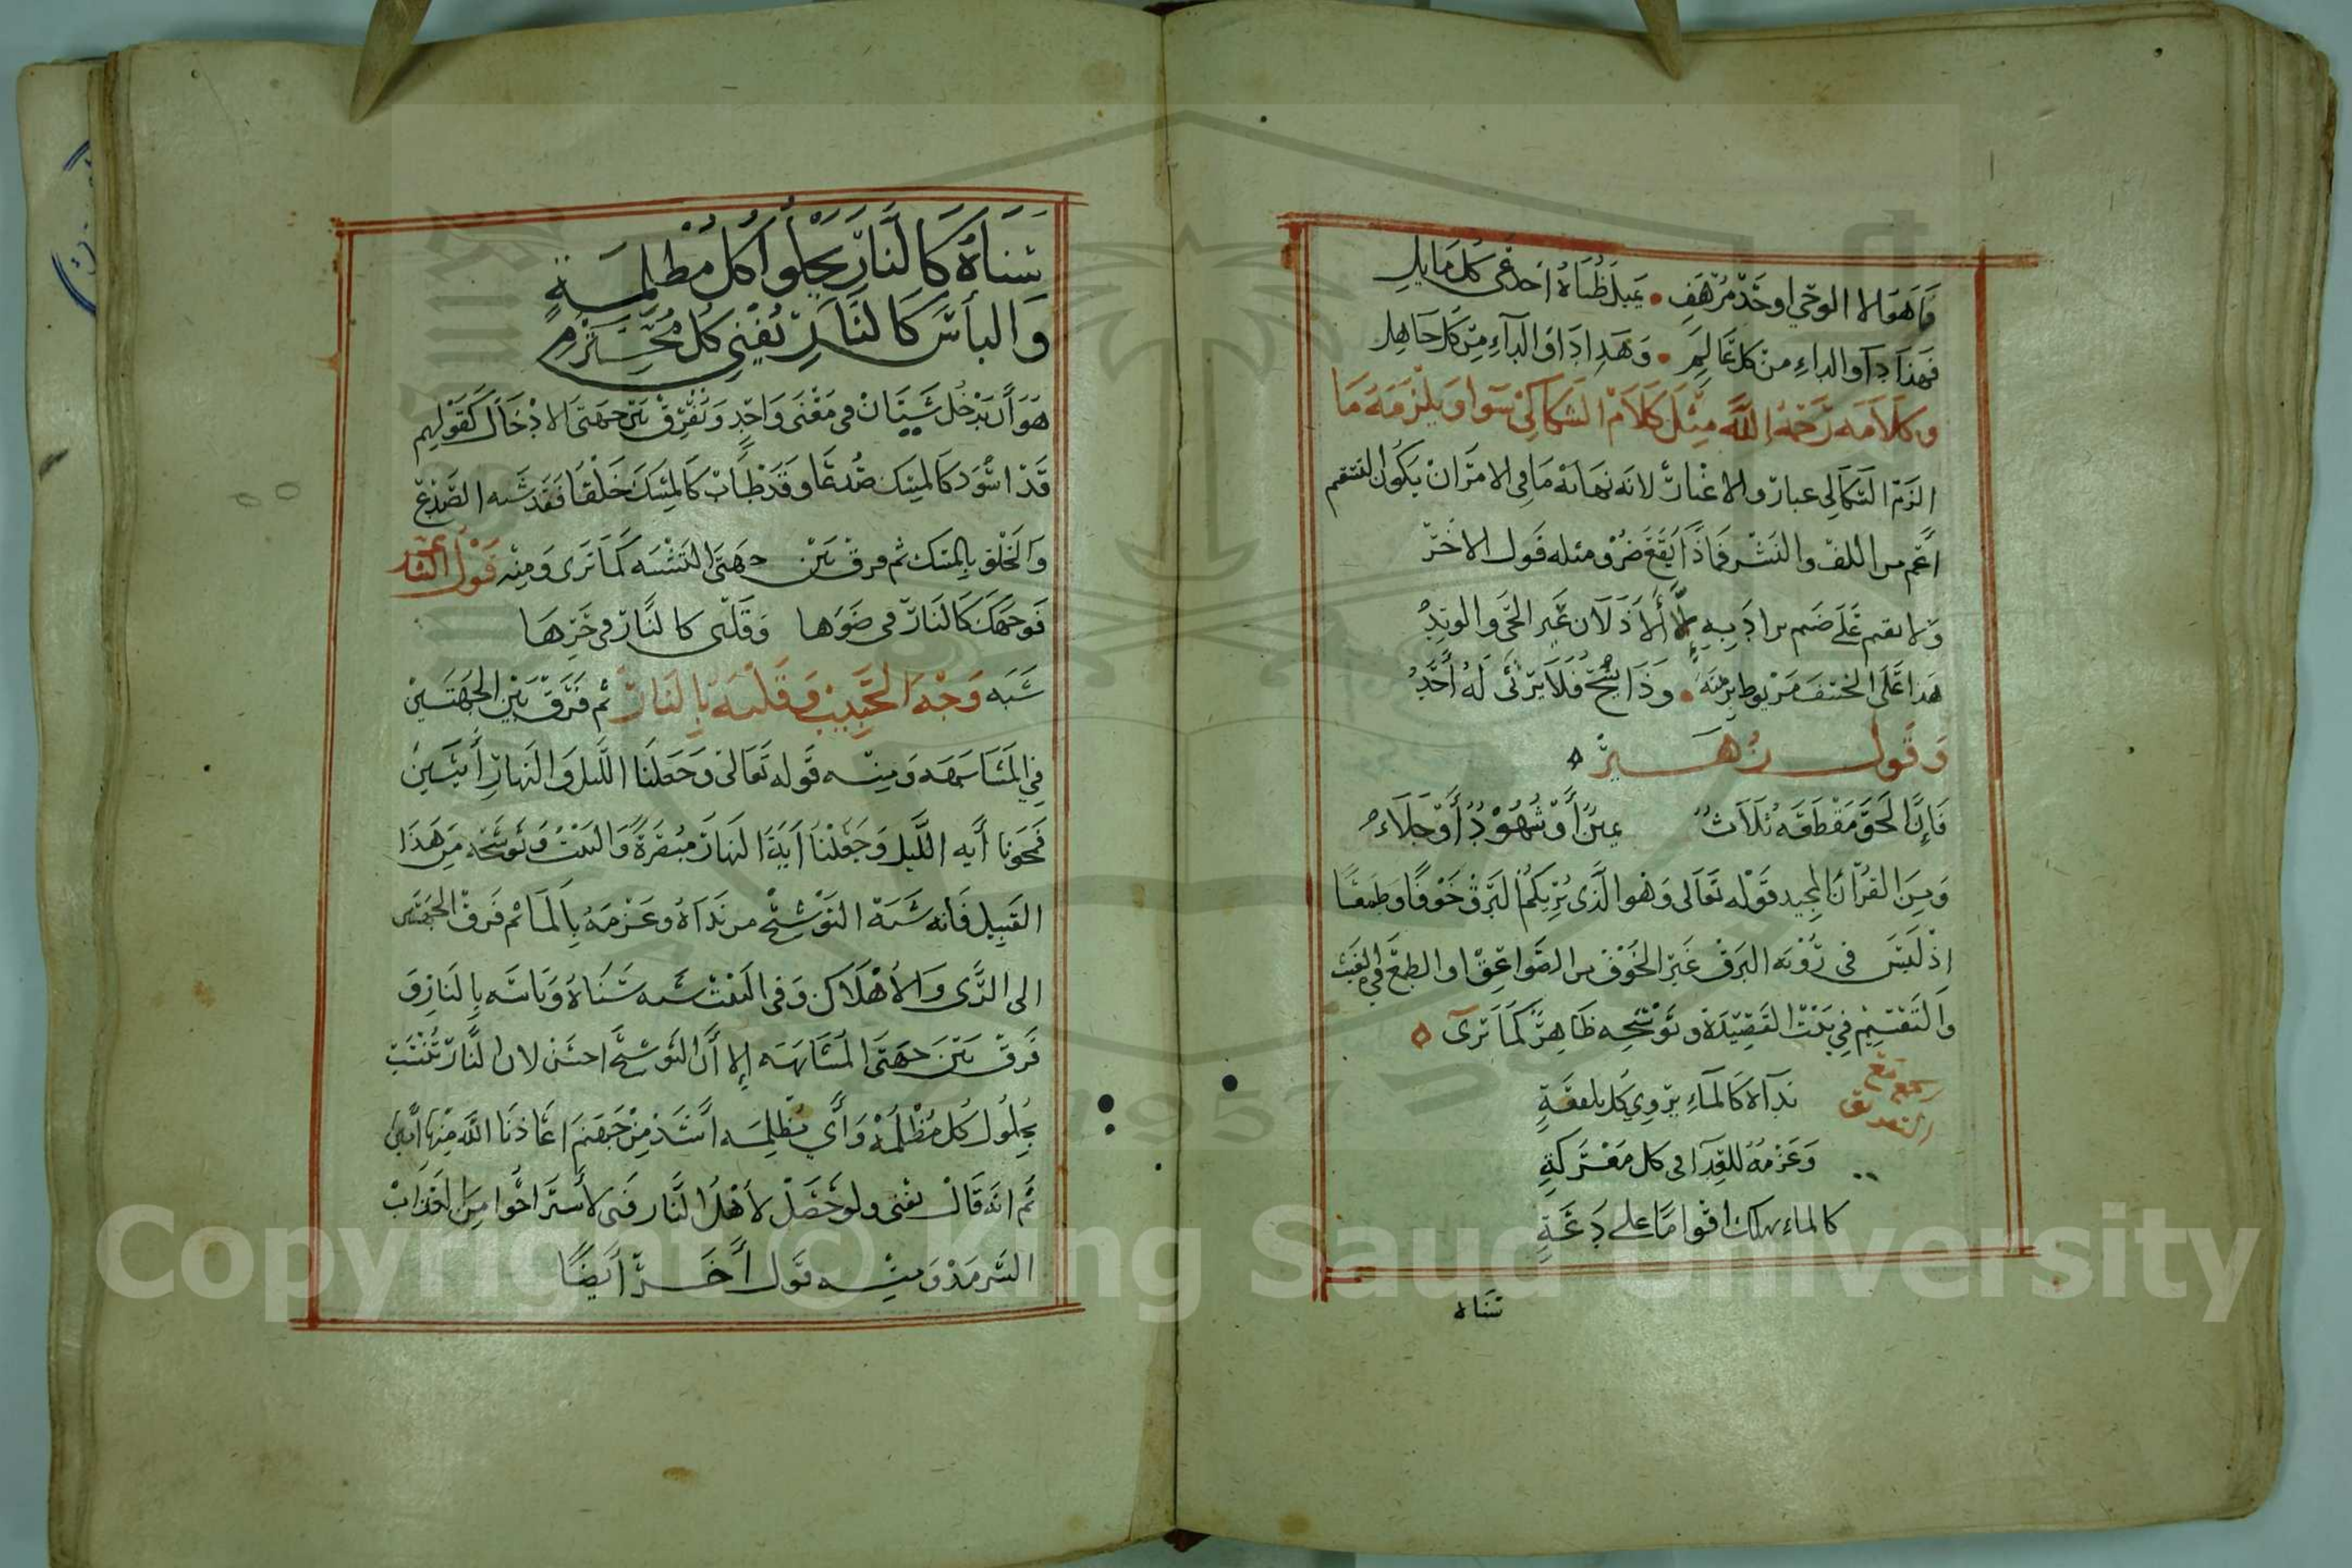 فما هو الا الوحي او حد مرهف • يميل ظباه اخدعي كل مايل
فهذا دآو الداء من كل عالم • وهذا دآو الدآء من كل جاهل
وكلامه رحمة الله مثل كلام السكاكي سوا ويلزمه ما
الزم السكاكي عبارة والاعتبار لانه نهايه ما في الامر ان يكون التقسيم
اعم من اللف والنشر فماذا يقع ضرو مثله قول الاخر
ولا يقيم على ضيم يراد به إلا ألاذلان عير الحي والوتد
هذا على الخسف مربوط برمته • وذا يشج فلا يرثى له أحد
وقول زهير ه
فإن الحق مقطعه ثلاث يمين أو شهود أو جلاء
ومن القرآن المجيد قوله تعالى وهو الذي يريكم البرق خوفا وطمعا
إذ ليس في رؤيه البرق غير الخوف من الصواعق او الطمع في الغيث
والتقسيم في بيت القصيدة وتوشيحه ظاهر كما ترى ه
جمع مع التفريق
نداه كالماء يروي كل بلقعة
وعزمه للعدا في كل معتركة
كالماء يهلك اقواما على دعة
سناه
سناه كالنار يجلوا كل مظلمة
والبأس كالنار يفني كل مجترم
هو أن يدخل شيئان في معنى واحد وتفرق بين جهتي الادخال كقولهم
قد اسود كالمسك صدغا وقد طاب كالمسك خلقا فقد شبه الصدغ
والخلق بالمسك ثم فرق بين جهتي التشبه كما ترى ومنه قول الشاعر
فوجهك كالنار في ضوها وقلبي كالنار في حرها
شبه وجه الحبيب وقلبه بالنار ثم فرق بين الجهتين
في المشابهه ومنه قوله تعالى وجعلنا الليل والنهار أيتين
فمحونا أيه الليل وجعلنا أية النهار مبصرة والبيت وتوشحه من هذا
القبيل فانه شبه التوشيح من نداه وعزمه بالماء ثم فرق الجهتين
الى الندى والأهلاك وفي البيت شبه سناه وباسه بالنار و
فرق بين جهتي المشابهه إلا أن التوشيح احسن لان النار
يجلو كل مظلمة وأي مظلمه أشد من جهنم اعاذنا الله منها
ثم انه قال يفني ولو حصل لأهل النار فنى لأستراحوا من العذاب
السرمد ومنه قول أخر أيضا